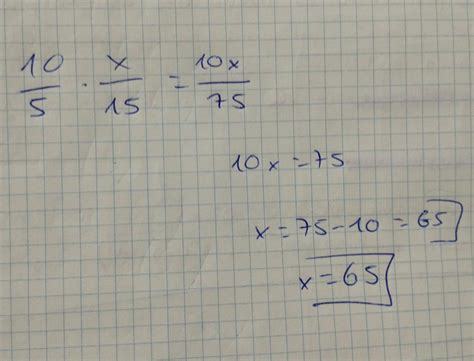 10/5 · x/15 = 10x/75
10x = 75
x = 75 - 10 = 65
x = 65